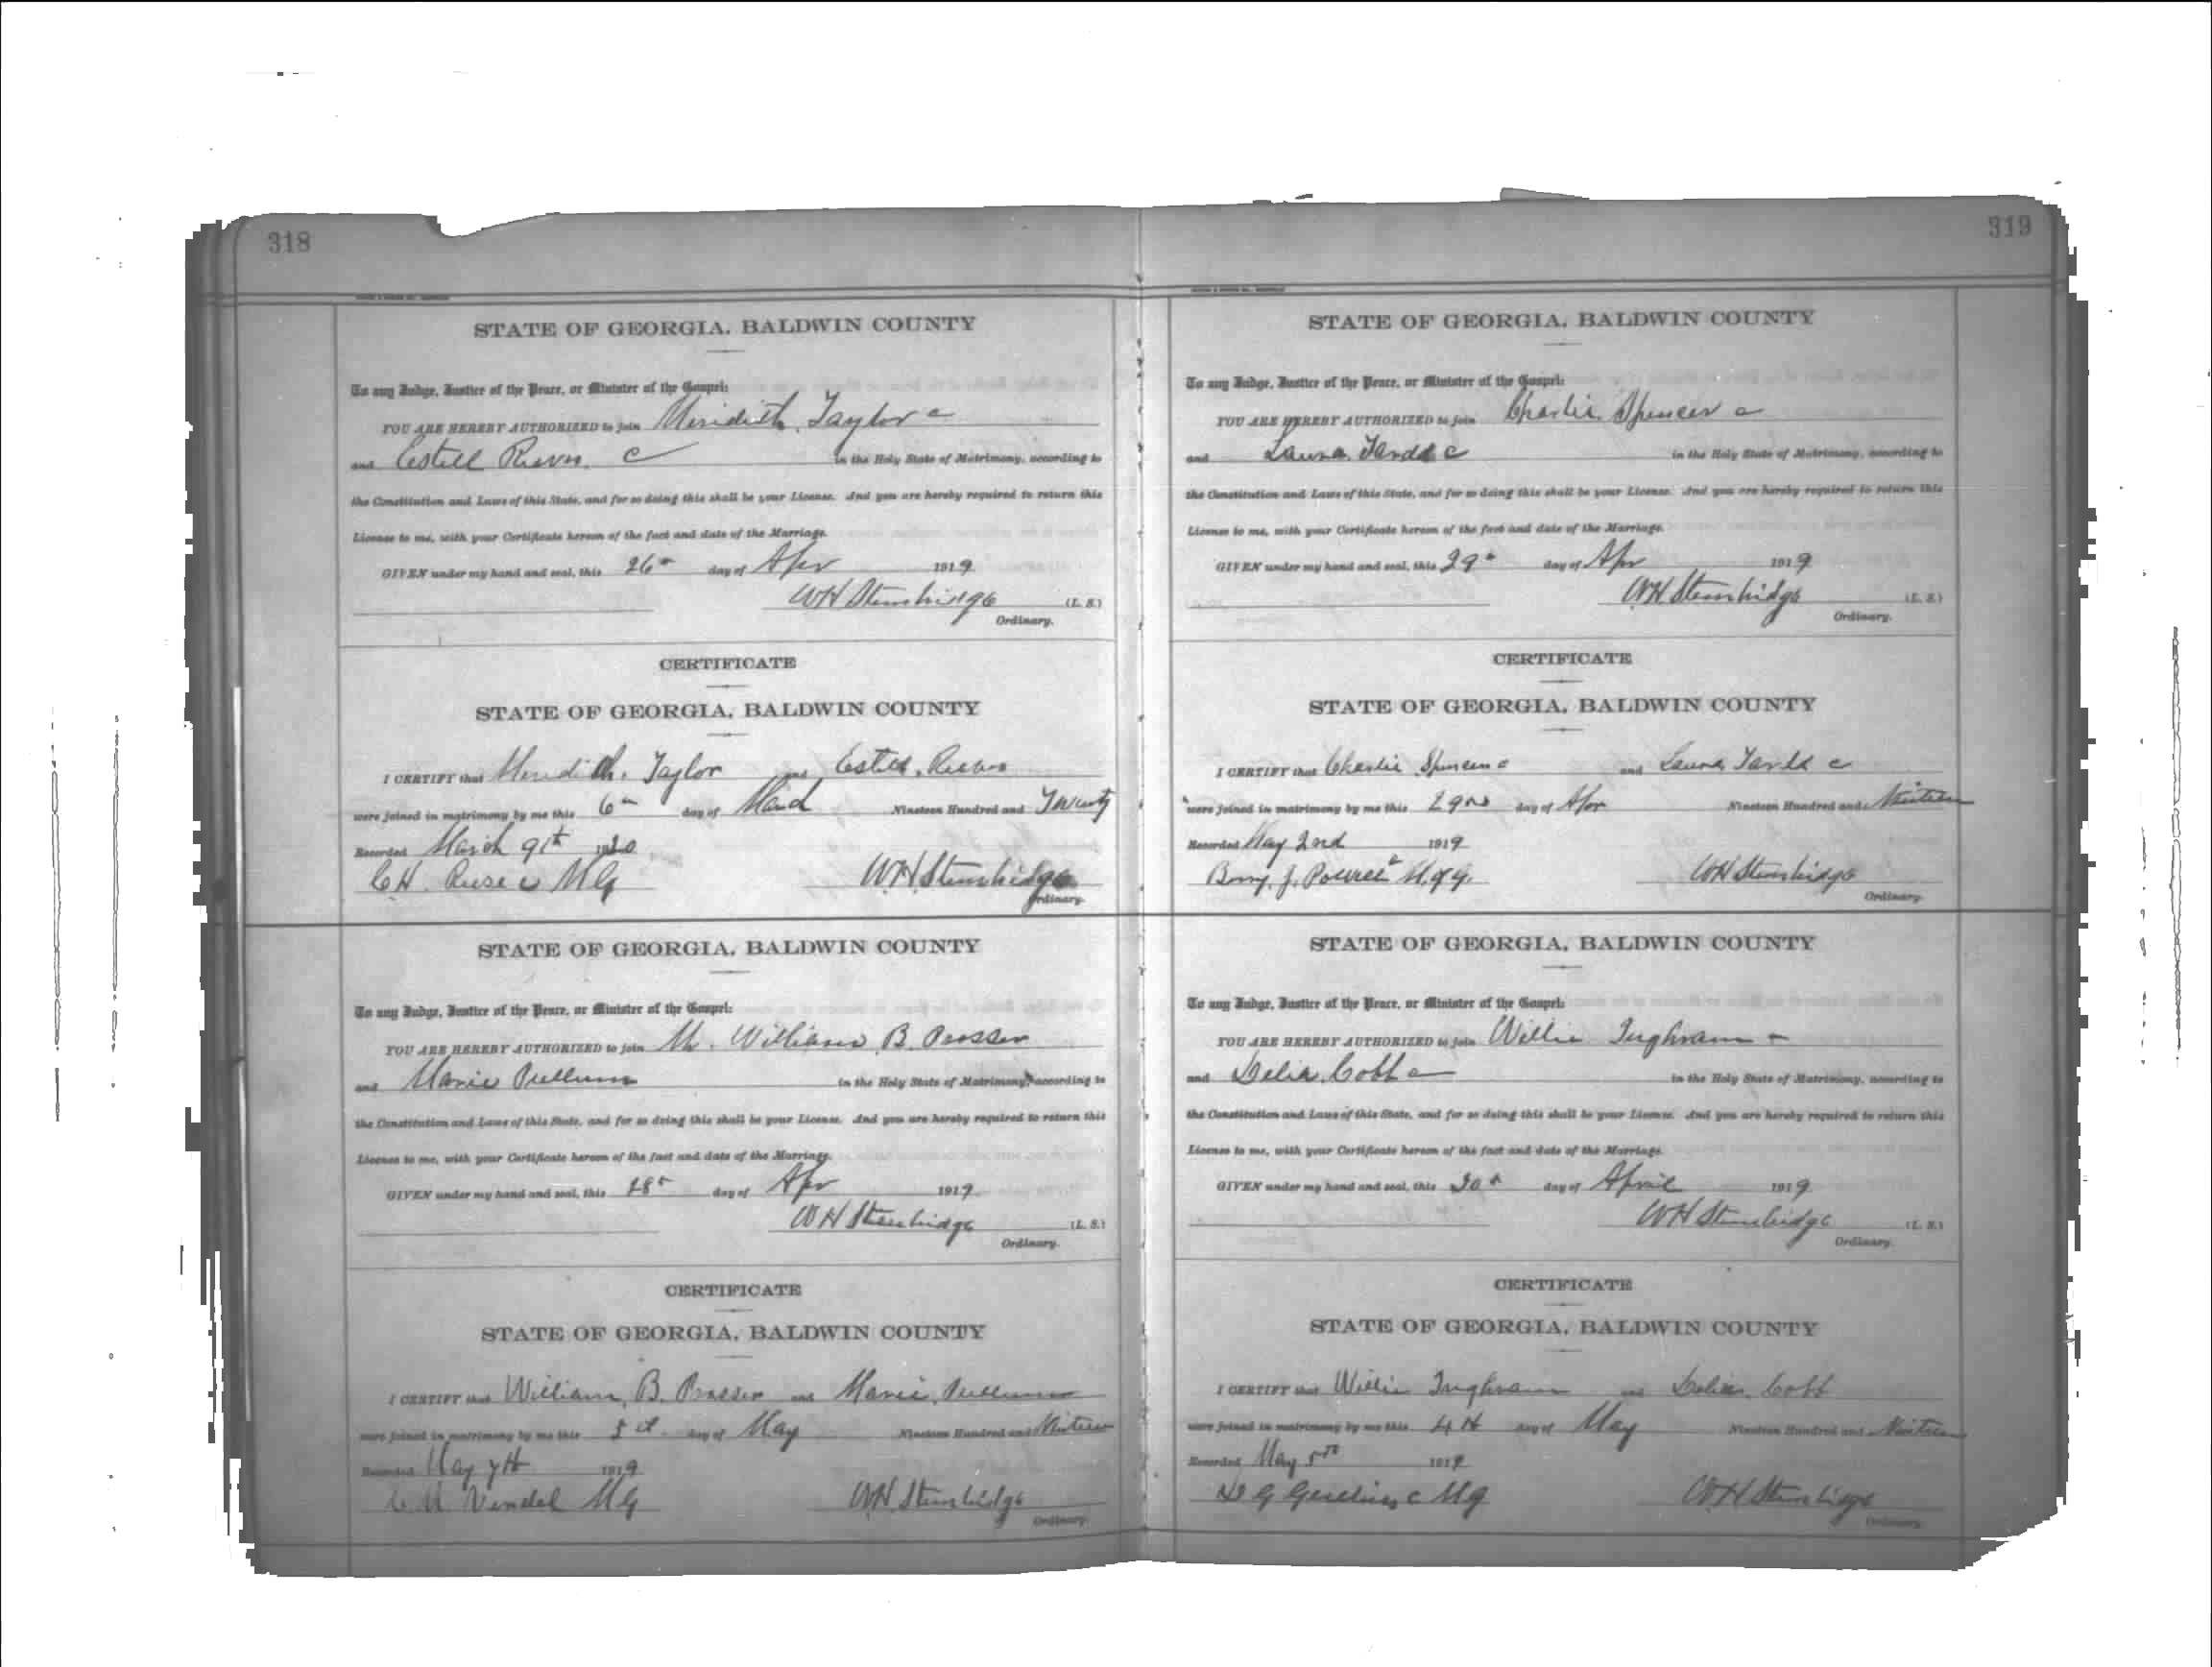 318
STATE OF GEORGIA, BALDWIN COUNTY
To any Judge, Justice of the Peace, or Minister of the Gospel:
YOU ARE HEREBY AUTHORIZED to join Meridith Taylor c
and Estell Reeves c in the Holy State of Matrimony, according to
the Constitution and Laws of this State, and for so doing this shall be your License. And you are hereby required to return this
License to me, with your Certificate hereon of the fact and date of the Marriage.
GIVEN under my hand and seal, this 26th day of Apr 1919
WH Stembridge (L. S.)
Ordinary.
CERTIFICATE
STATE OF GEORGIA, BALDWIN COUNTY
I CERTIFY that Meridith Taylor and Estell Reeves
were joined in matrimony by me this 6th day of March Nineteen Hundred and Twenty
Recorded March 9th 1920
C H M G W.H. Stembridge
Ordinary.
STATE OF GEORGIA, BALDWIN COUNTY
To any Judge, Justice of the Peace, or Minister of the Gospel:
YOU ARE HEREBY AUTHORIZED to join M. William B. Prosser
and Marie Pullum in the Holy State of Matrimony, according to
the Constitution and Laws of this State, and for so doing this shall be your License. And you are hereby required to return this
License to me, with your Certificate hereon of the fact and date of the Marriage.
GIVEN under my hand and seal, this 28th day of Apr 1919
WH Stembridge (L. S.)
Ordinary.
CERTIFICATE
STATE OF GEORGIA, BALDWIN COUNTY
I CERTIFY that William B. Prosser and Marie Pullum
were joined in matrimony by me this day of May Nineteen Hundred and Nineteen
Recorded May 7th 1919
M G WH Stembridge
Ordinary.
319
STATE OF GEORGIA, BALDWIN COUNTY
To any Judge, Justice of the Peace, or Minister of the Gospel:
YOU ARE HEREBY AUTHORIZED to join Charlie Spencer c
and Laura c in the Holy State of Matrimony, according to
the Constitution and Laws of this State, and for so doing this shall be your License. And you are hereby required to return this
License to me, with your Certificate hereon of the fact and date of the Marriage.
GIVEN under my hand and seal, this 29th day of Apr 1919
WH Stembridge (L. S.)
Ordinary.
CERTIFICATE
STATE OF GEORGIA, BALDWIN COUNTY
I CERTIFY that Charlie Spencer c and Laura c
were joined in matrimony by me this 29nd day of Apr Nineteen Hundred and Nineteen
Recorded May 2nd 1919
J. M. of G. WH Stembridge
Ordinary.
STATE OF GEORGIA, BALDWIN COUNTY
To any Judge, Justice of the Peace, or Minister of the Gospel:
YOU ARE HEREBY AUTHORIZED to join Willie Inghram c
and Delia Cobb c in the Holy State of Matrimony, according to
the Constitution and Laws of this State, and for so doing this shall be your License. And you are hereby required to return this
License to me, with your Certificate hereon of the fact and date of the Marriage.
GIVEN under my hand and seal, this 30th day of April 1919
WH Stembridge (L. S.)
Ordinary.
CERTIFICATE
STATE OF GEORGIA, BALDWIN COUNTY
I CERTIFY that Willie Inghram and Delia Cobb
were joined in matrimony by me this 4th day of May Nineteen Hundred and Nineteen
Recorded May 5th 1919
G c M G WH Stembridge
Ordinary.